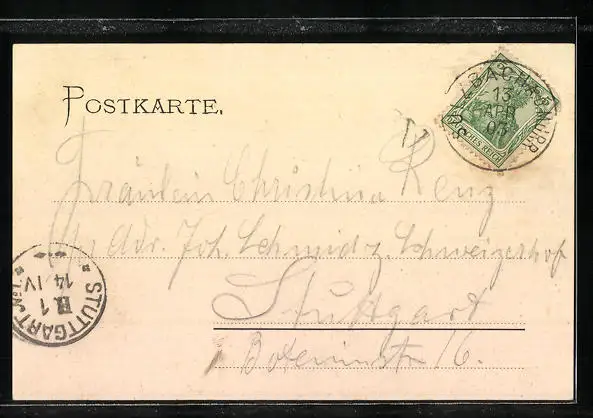 POSTKARTE.
13
APR
07
DEUTSCHES REICH
Fräulein Christina Renz
Adr. Joh. Schmid z. Schweizerhof
Stuttgart
16.
STUTTGART
1
14 IV